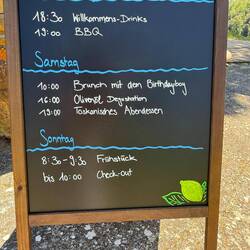 18:30 Willkommens-Drinks
19:00 BBQ
Samstag
10:00 Brunch mit den Birthdayboy
16:00 Olivenöl Degustation
19:00 Toskanisches Abendessen
Sonntag
8:30-9:30 Frühstück
bis 10:00 Check-out